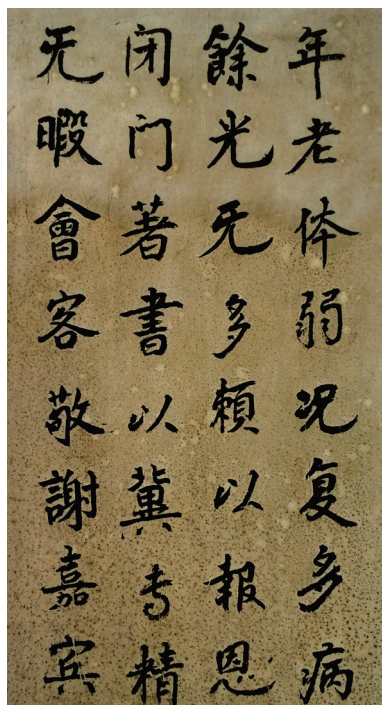 年老体弱况复多病
馀光无多赖以報恩
闭门著書以冀专精
无暇會客敬謝嘉宾